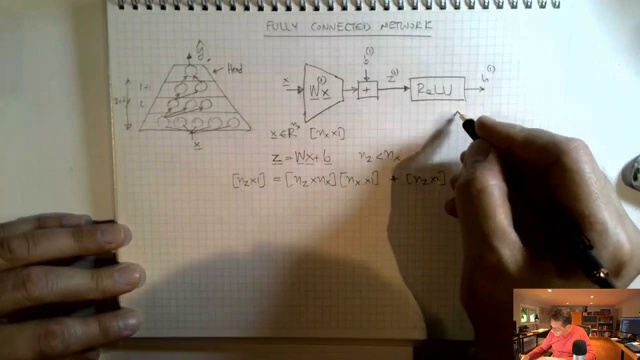 FULLY CONNECTED NETWORK
ŷ
Head
l+1
l
x
x
W x
(1)
b
(1)
+
z
(1)
ReLU
h
(1)
x ∈ R^nx [nx×1]
z = Wx+b nz < nx
[nz×1] = [nz × nx] [nx ×1] + [nz×1]